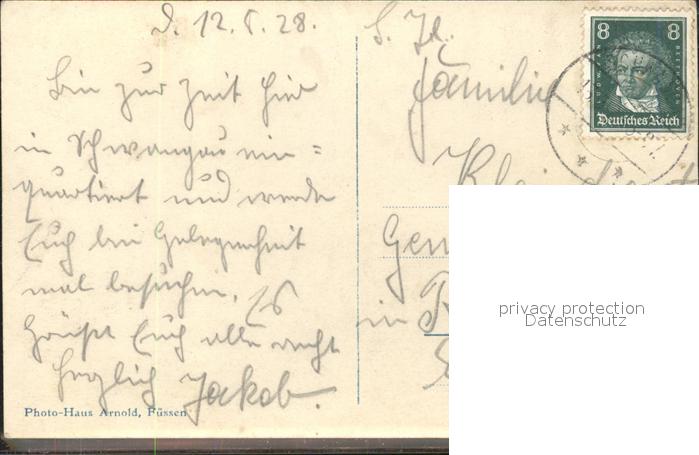 d. 12. 5. 28.
Bin zur Zeit hier
in Schwangau ein=
quartiert und werde
Euch bei Gelegenheit
mal besuchen. Es
Grüßt Euch alle recht
herzlich Jakob.
Photo-Haus Arnold, Füssen
Familie
in
8 8
LUDWIG VAN BEETHOVEN
Deutsches Reich
privacy protection
Datenschutz